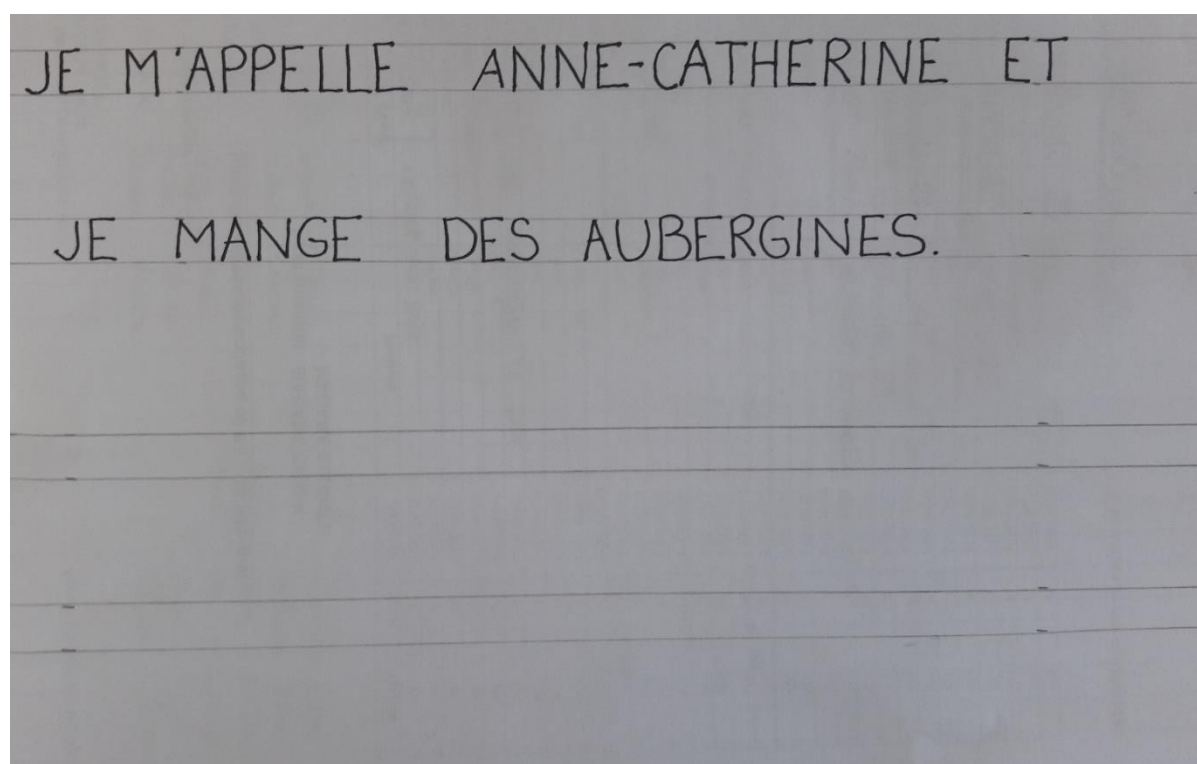 JE M'APPELLE ANNE-CATHERINE ET
JE MANGE DES AUBERGINES.